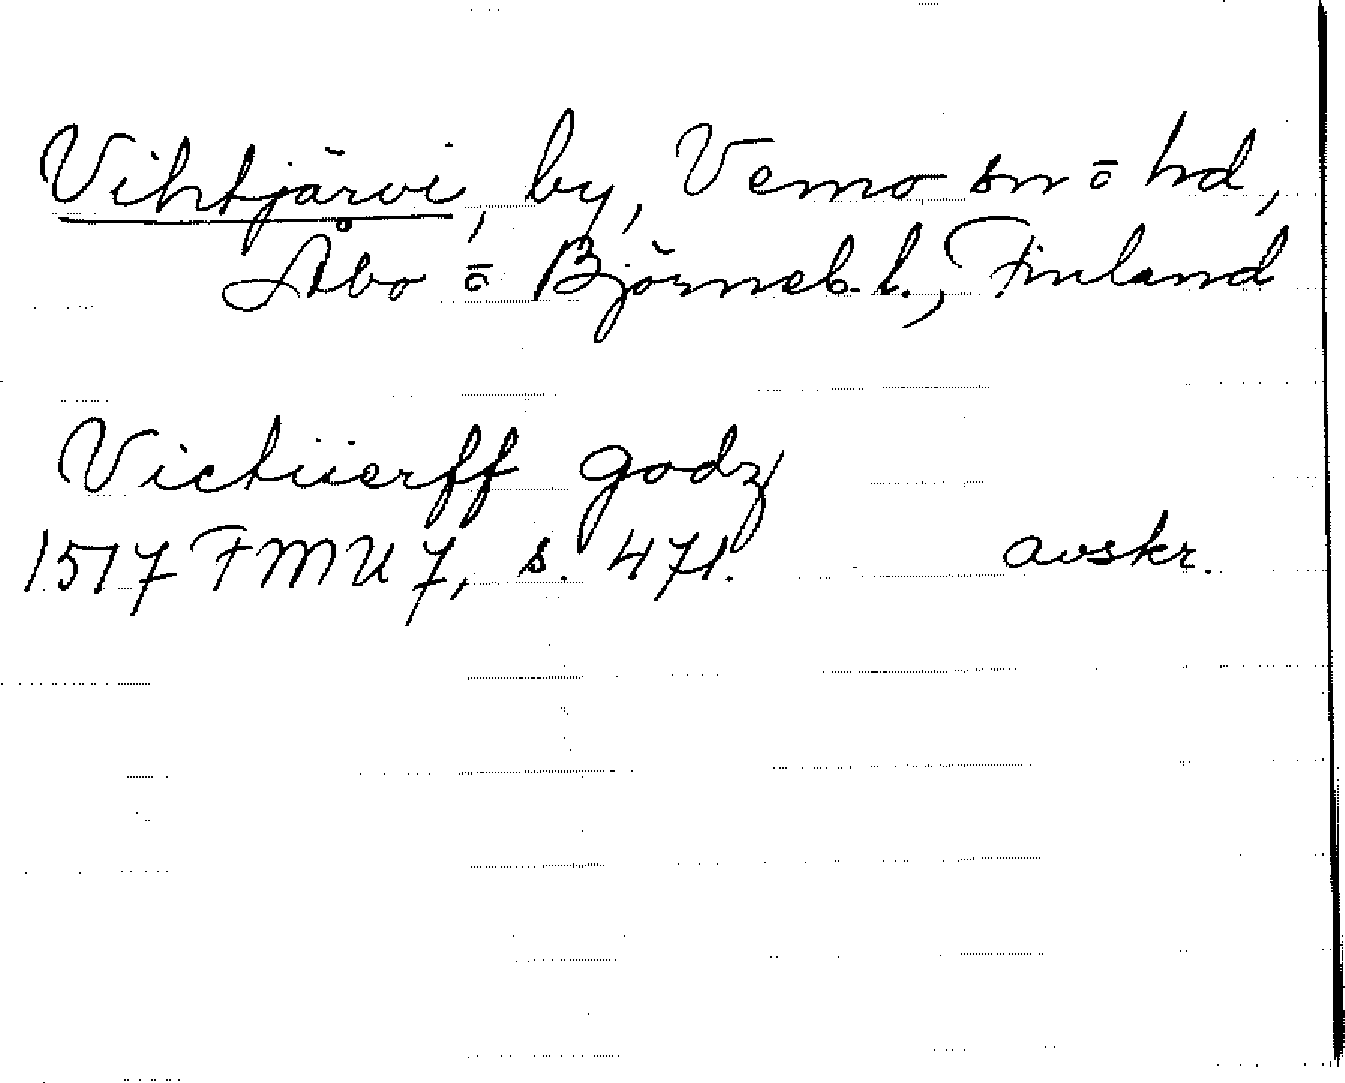 Vihtjärvi, by, Vemo sn o hd,
Åbo o Björneb. l., Finland
Victiierff godz
1517 FMU 7, s. 471. avskr.